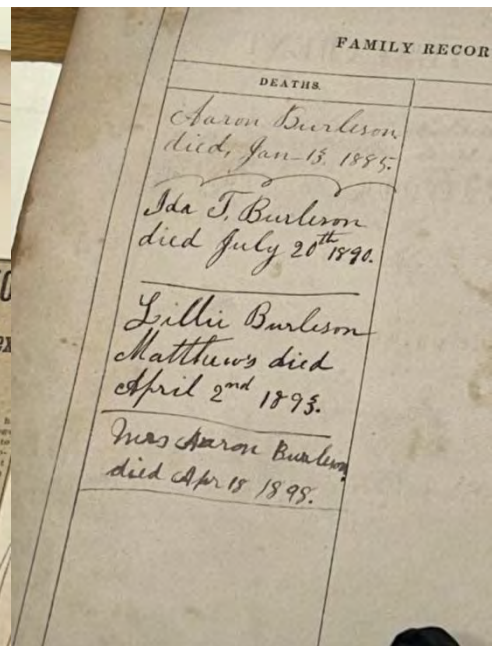 FAMILY RECOR
DEATHS.
Aaron Burleson
died, Jan 13, 1885.
Ida T. Burleson
died July 20th 1890.
Lillie Burleson
Matthews died
April 2nd 1893.
Mrs Aaron Burleson
died Apr 18 1898.